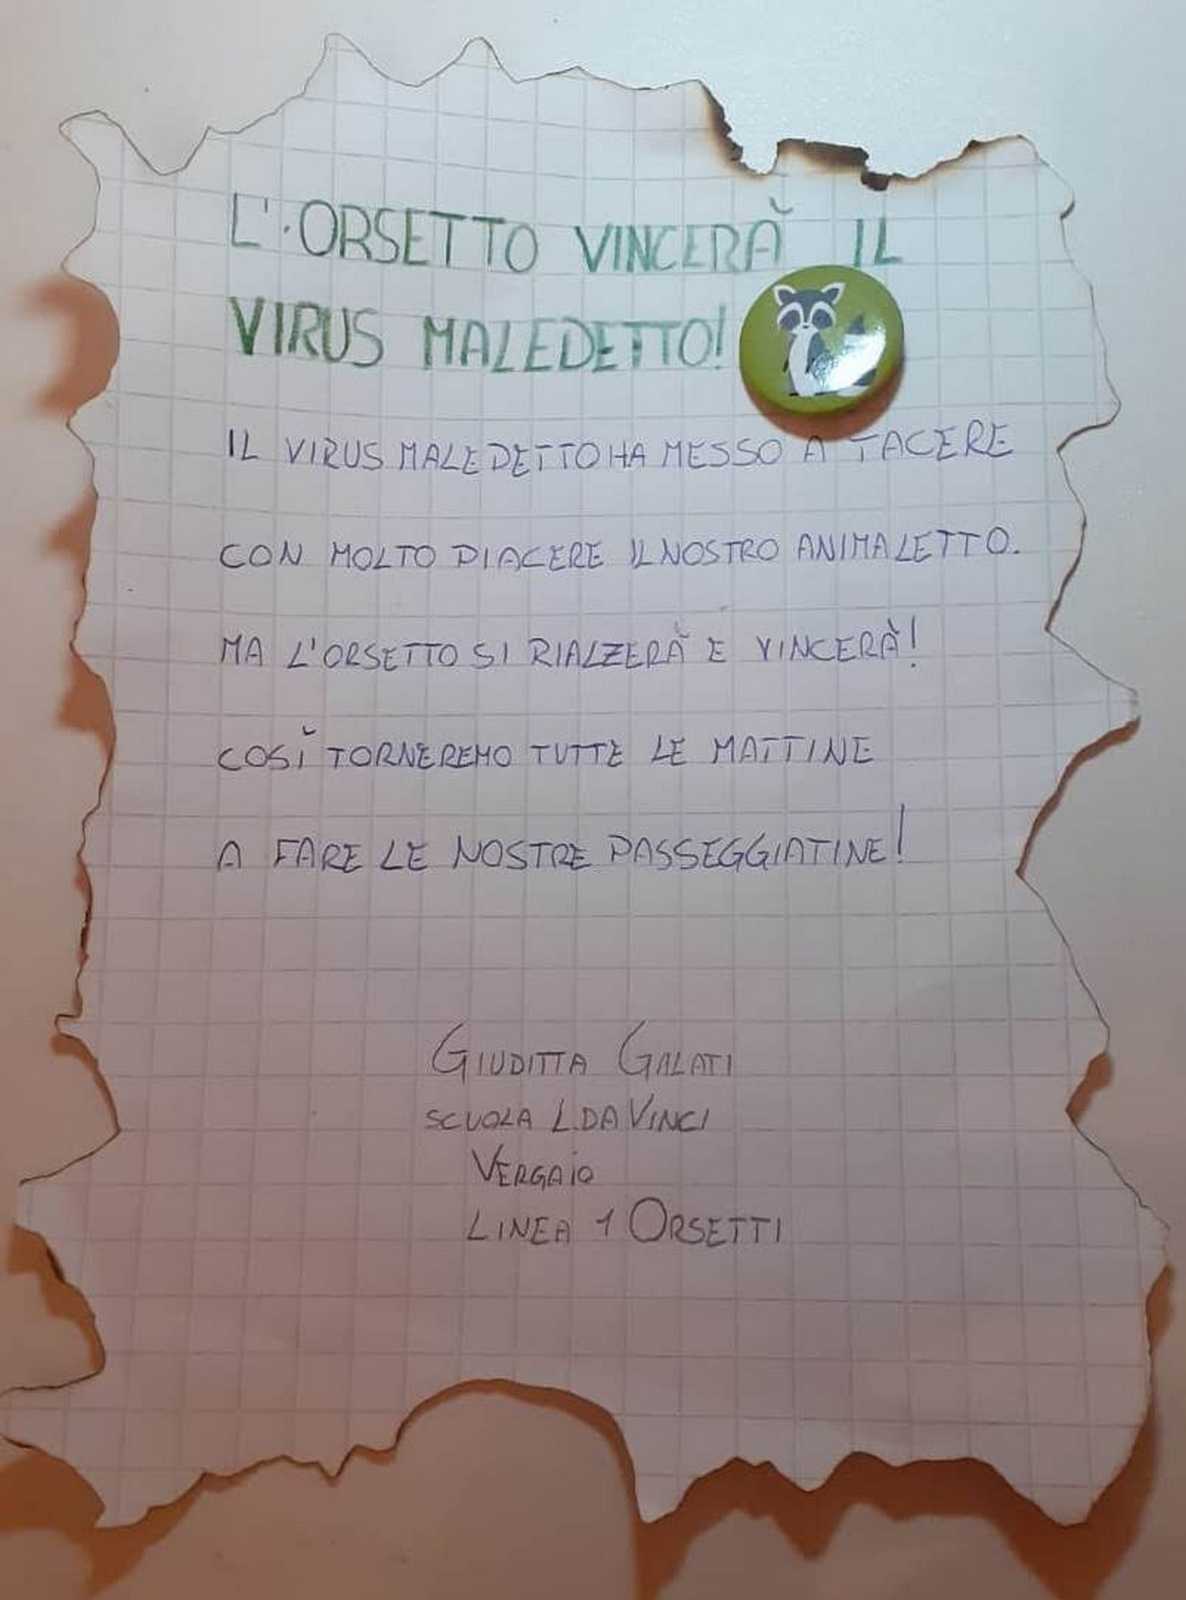 L'ORSETTO VINCERÀ IL
VIRUS MALEDETTO!
IL VIRUS MALEDETTO HA MESSO A TACERE
CON MOLTO PIACERE IL NOSTRO ANIMALETTO.
MA L'ORSETTO SI RIALZERÀ E VINCERÀ!
COSÌ TORNEREMO TUTTE LE MATTINE
A FARE LE NOSTRE PASSEGGIATINE!
GIUDITTA GALATI
SCUOLA L. DA VINCI
VERGAIO
LINEA 1 ORSETTI